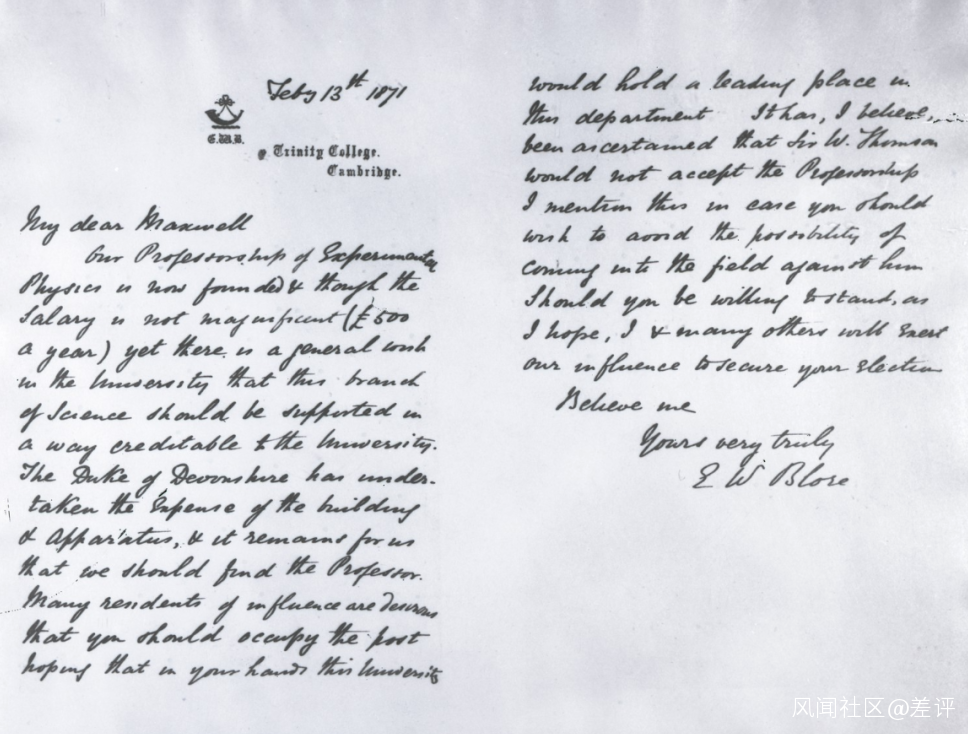 Feby 13th 1871
E.W.B.
Trinity College.
Cambridge.
My dear Maxwell
Our Professorship of Experimental
Physics is now founded & though the
Salary is not magnificent (£500
a year) yet there is a general wish
in the University that this branch
of Science should be supported in
a way creditable to the University.
The Duke of Devonshire has under-
taken the Expense of the building
& Apparatus, & it remains for us
that we should find the Professor.
Many residents of influence are desirous
that you should occupy the post
hoping that in your hands this University
would hold a leading place in
this department It has, I believe,
been ascertained that Sir W. Thomson
would not accept the Professorship
I mention this in case you should
wish to avoid the possibility of
coming into the field against him
Should you be willing to stand, as
I hope, I & many others will Exert
our influence to secure your Election
Believe me
Yours very truly
E W Blore
风闻社区@差评